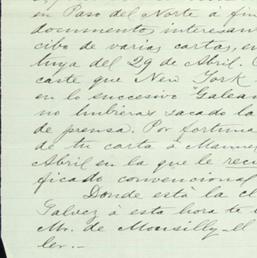 en Paso del Norte á fin
documentos interesan
cibo de varias cartas, en
tuya del 29 de Abril.
caste que New York
en lo sucesivo "Galean
no hubieras sacado la
de prensa. Por fortuna
de tu carta á Manue
Abril en la que le recu
ficado convencional
Donde está la cl
Galvez á esta hora te
Mr. de Monsilly el
ler.-